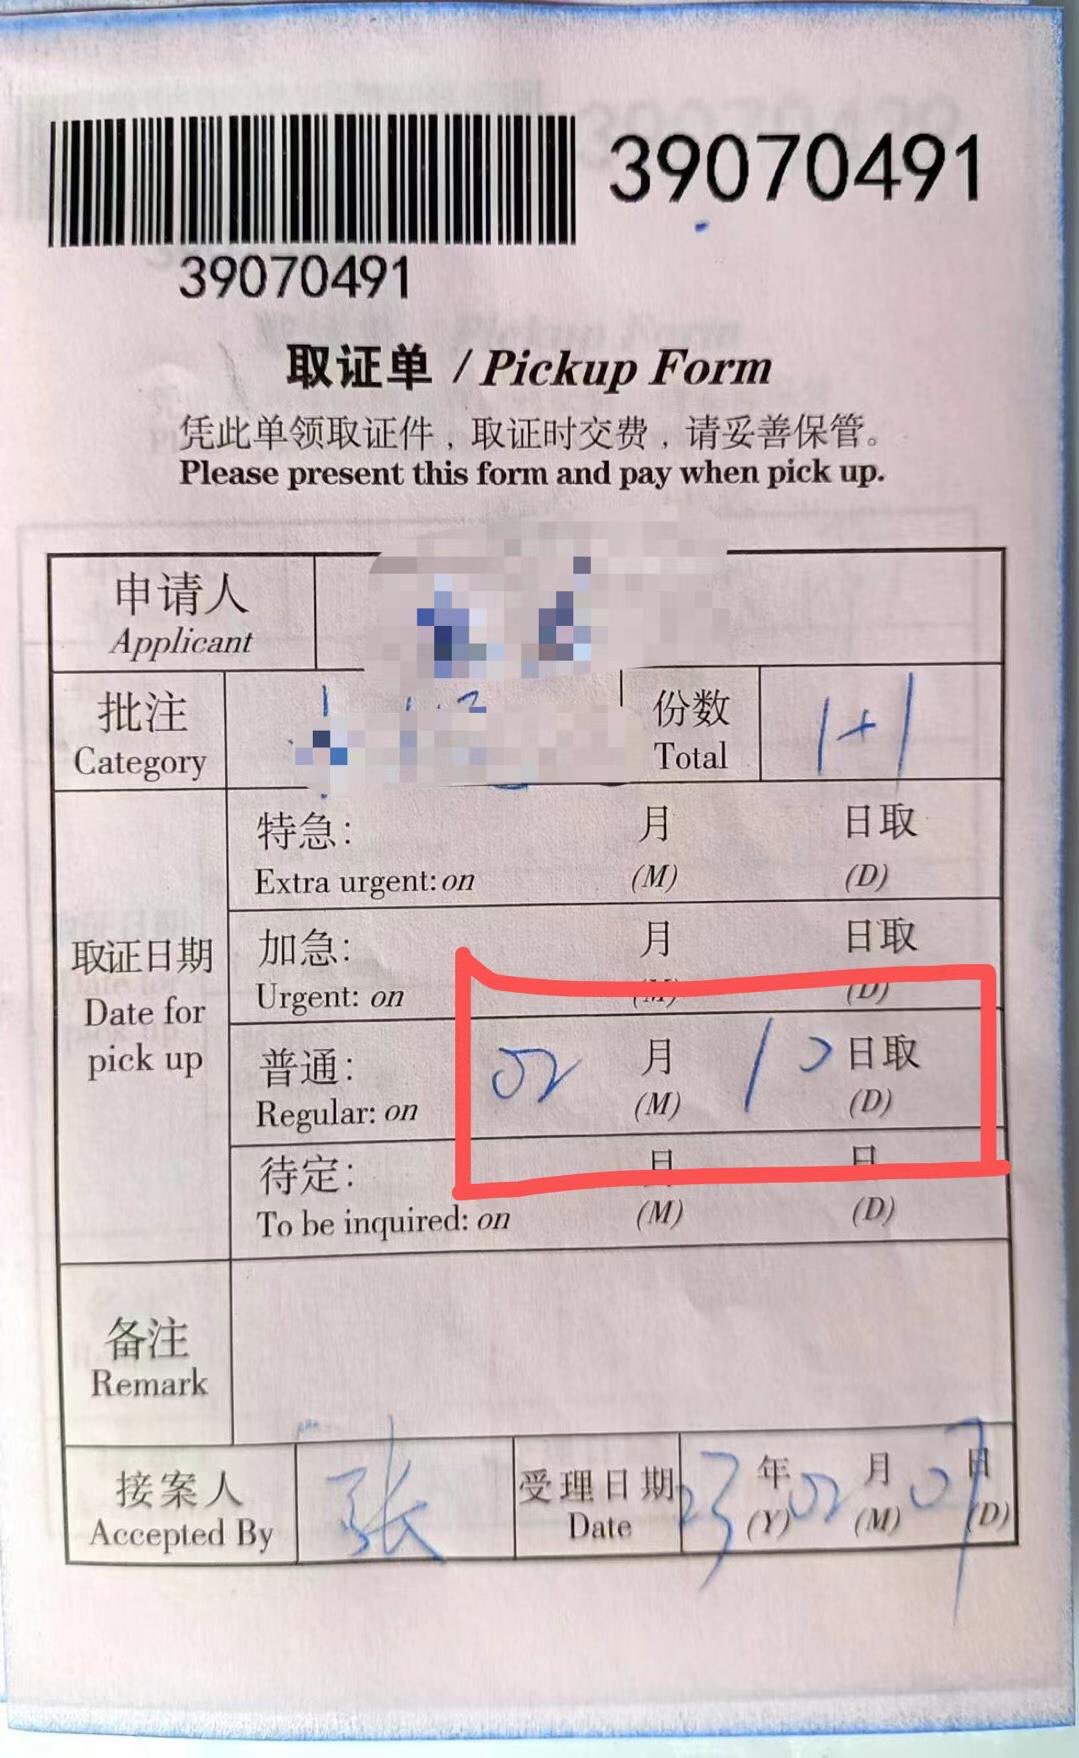 39070491
39070491
取证单 / Pickup Form
凭此单领取证件，取证时交费，请妥善保管。
Please present this form and pay when pick up.
申请人
Applicant
批注
Category
份数 1+1
Total
取证日期
Date for
pick up
特急: 月 日取
Extra urgent: on (M) (D)
加急: 月 日取
Urgent: on (M) (D)
普通: 02 月 10 日取
Regular: on (M) (D)
待定: 月 日
To be inquired: on (M) (D)
备注
Remark
接案人 张
Accepted By
受理日期 23 年 02 月 07 日
Date (Y) (M) (D)